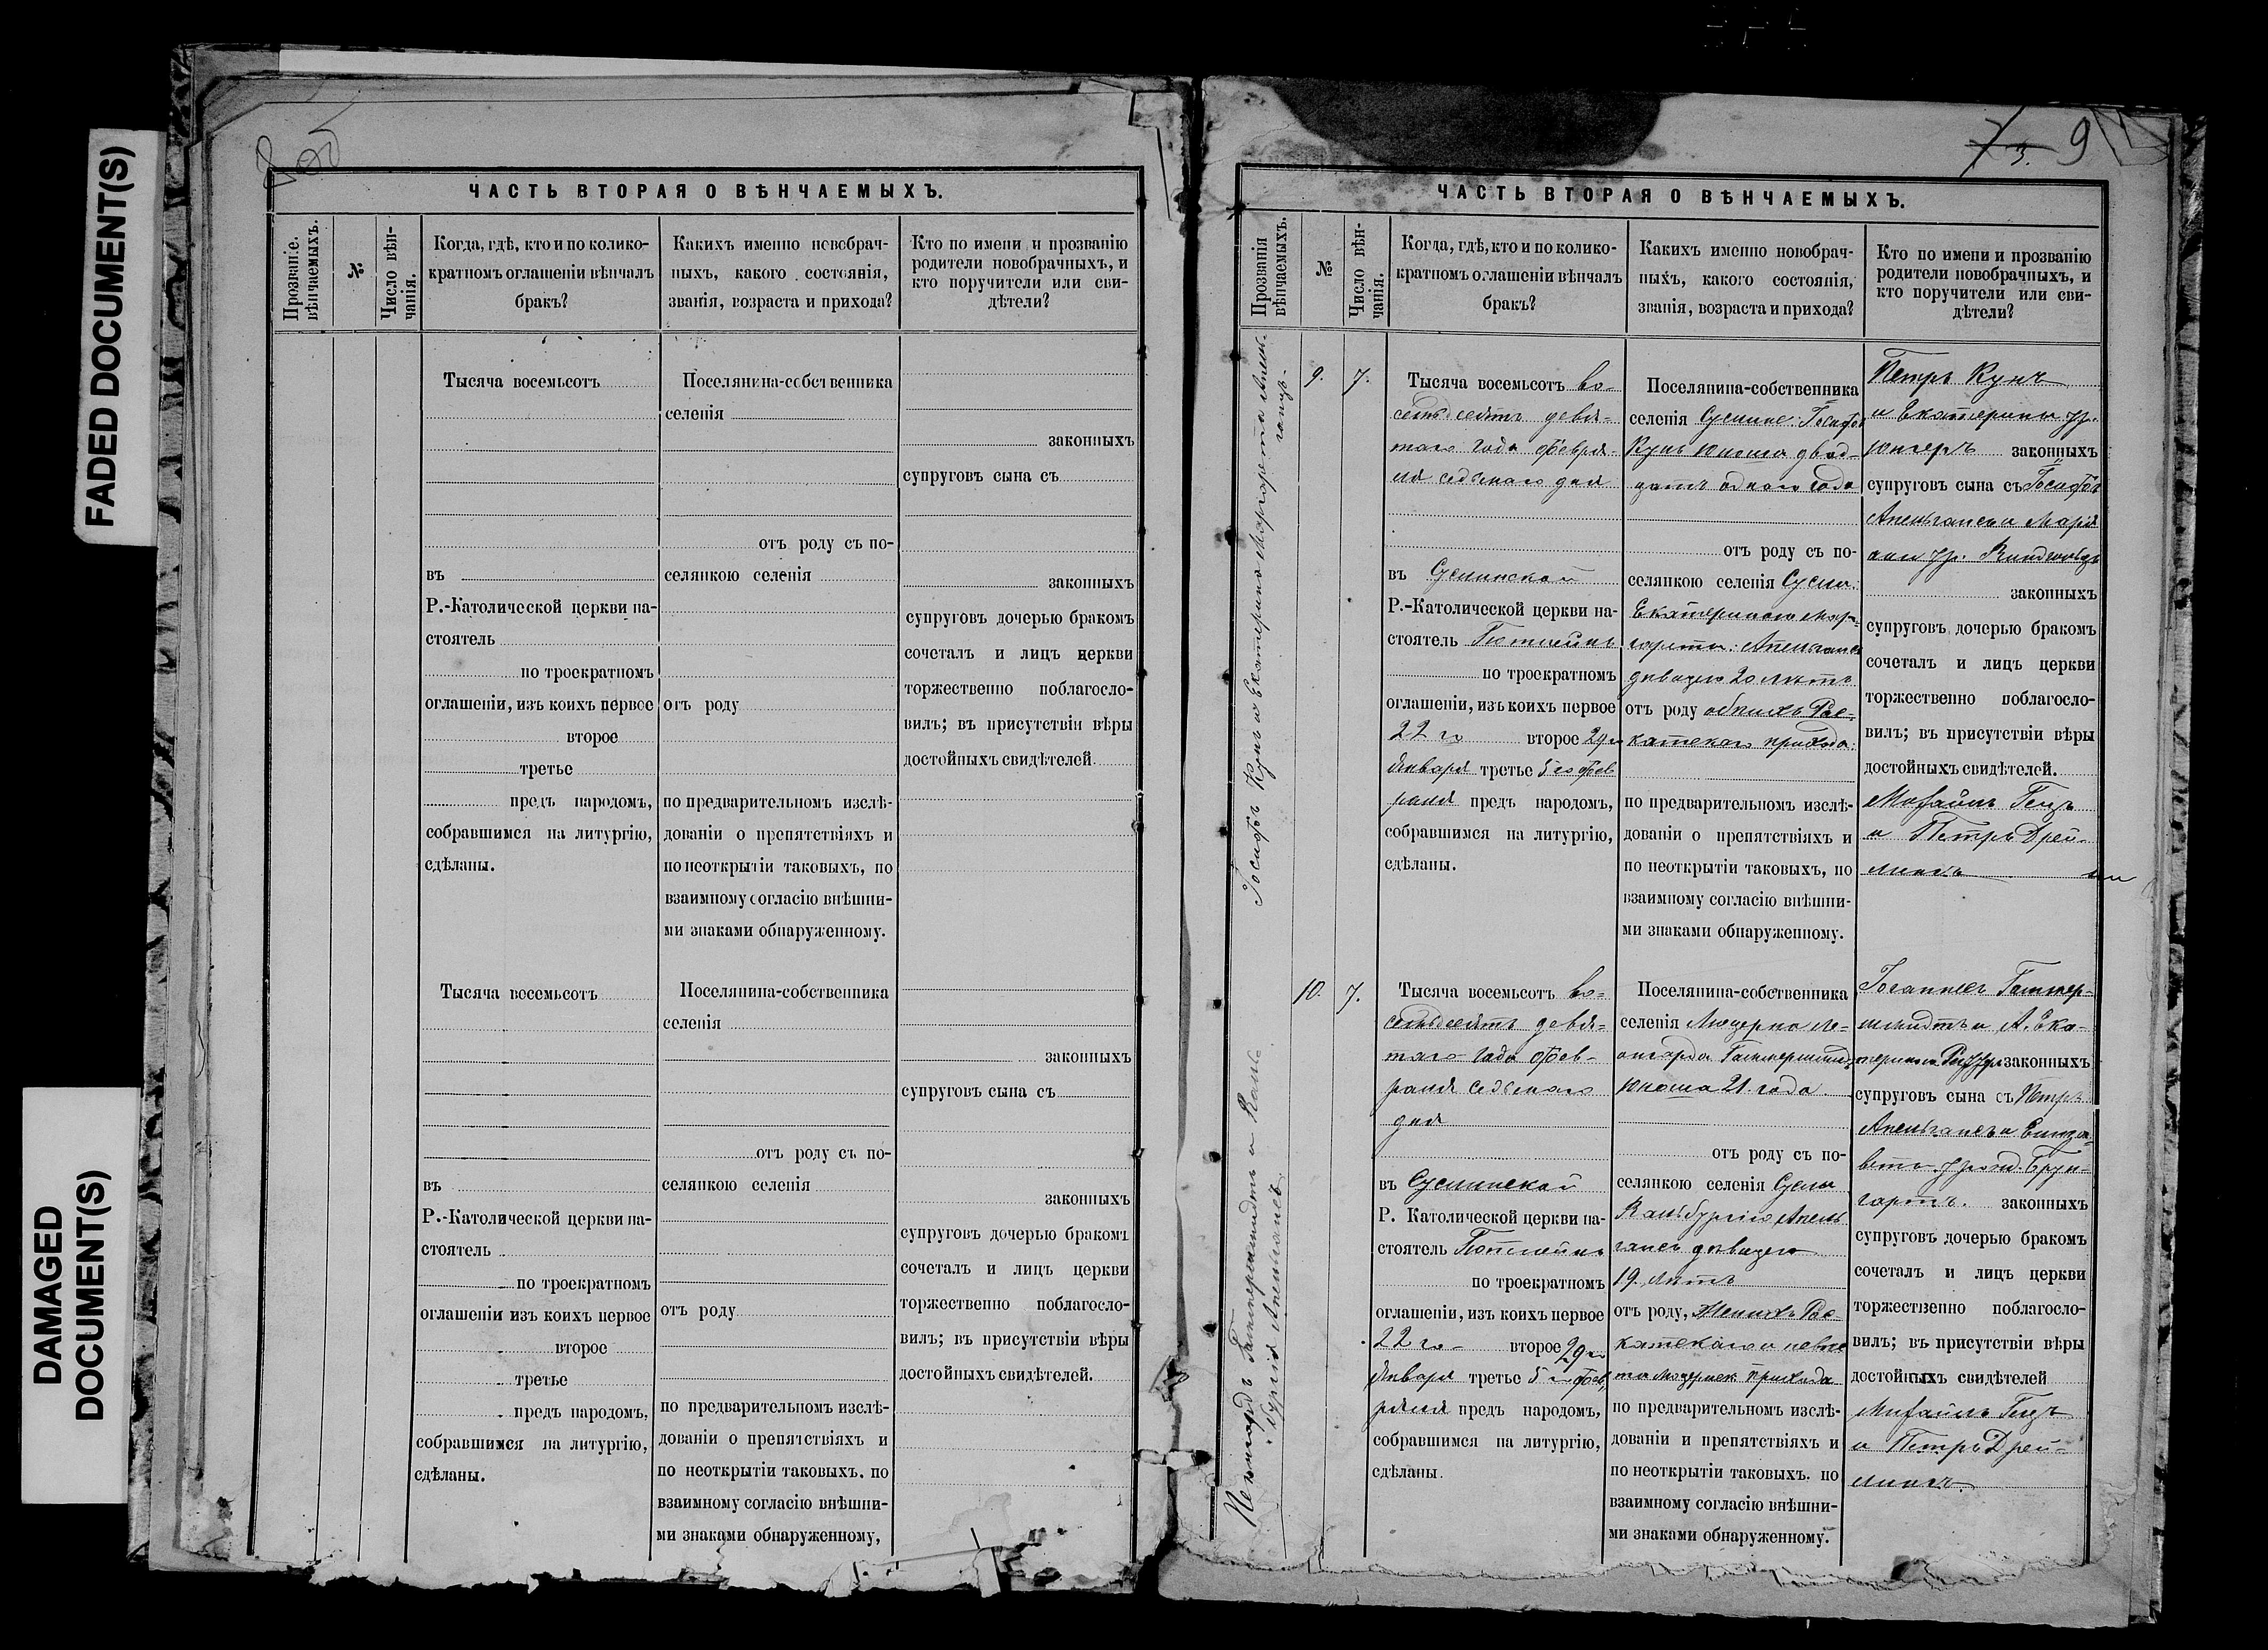 FADED DOCUMENT(S)
DAMAGED
DOCUMENT(S)
ЧАСТЬ ВТОРАЯ О ВѢНЧАЕМЫХЪ.
Прозваніе.
вѣнчаемыхъ.
№
Число вѣн-
чанія.
Когда, гдѣ, кто и по колико-
кратномъ оглашеніи вѣнчалъ
бракъ?
Какихъ именно новобрач-
ныхъ, какого состоянія,
званія, возраста и прихода?
Кто по имени и прозванію
родители новобрачныхъ, и
кто поручители или сви-
дѣтели?
Тысяча восемьсотъ
въ
Р.-Католической церкви на-
стоятель
по троекратномъ
оглашеніи, изъ коихъ первое
второе
третье
предъ народомъ,
собравшимся на литургію,
сдѣланы.
Поселянина-собственника
селенія
отъ роду съ по-
селянкою селенія
отъ роду
по предварительномъ изслѣ-
дованіи о препятствіяхъ и
по неоткрытіи таковыхъ, по
взаимному согласію внѣшни-
ми знаками обнаруженному.
законныхъ
супруговъ сына съ
законныхъ
супруговъ дочерью бракомъ
сочеталъ и лицъ церкви
торжественно поблагосло-
вилъ; въ присутствіи вѣры
достойныхъ свидѣтелей.
Тысяча восемьсотъ
въ
Р.-Католической церкви на-
стоятель
по троекратномъ
оглашеніи изъ коихъ первое
второе
третье
предъ народомъ,
собравшимся на литургію,
сдѣланы.
Поселянина-собственника
селенія
отъ роду съ по-
селянкою селенія
отъ роду
по предварительномъ изслѣ-
дованіи о препятствіяхъ и
по неоткрытіи таковыхъ. по
взаимному согласію внѣшни-
ми знаками обнаруженному,
законныхъ
супруговъ сына съ
законныхъ
супруговъ дочерью бракомъ
сочеталъ и лицъ церкви
торжественно поблагосло-
вилъ; въ присутствіи вѣры
достойныхъ свидѣтелей.
3. 9
ЧАСТЬ ВТОРАЯ О ВѢНЧАЕМЫХЪ.
Прозванія
вѣнчаемыхъ.
№
Число вѣн-
чанія.
Когда, гдѣ, кто и по колико-
кратномъ оглашеніи вѣнчалъ
бракъ?
Какихъ именно новобрач-
ныхъ, какого состоянія,
званія, возраста и прихода?
Кто по имени и прозванію
родители новобрачныхъ, и
кто поручители или сви-
дѣтели?
Іосифъ Кунъ и Екатерина Маргарета Апель-
гансъ.
9.
7.
Тысяча восемьсотъ во-
семьдесятъ девя-
таго года февра-
ля седьмаго дня
въ Суслинской
Р.-Католической церкви на-
стоятель Готлейнъ
по троекратномъ
оглашеніи, изъ коихъ первое
22 го второе 29 го
Января третье 5 го фев
раля предъ народомъ,
собравшимся на литургію,
сдѣланы.
Поселянина-собственника
селенія Суслы: Іосифъ
Кунъ юноша двад-
цать одного года
отъ роду съ по-
селянкою селенія Суслы:
Екатериною Мар-
гарета: Апельгансъ
дѣвицею 20 лѣтъ
отъ роду обоихъ Рас-
катскаго прихода:
по предварительномъ изслѣ-
дованіи о препятствіяхъ и
по неоткрытіи таковыхъ, по
взаимному согласію внѣшни-
ми знаками обнаруженному.
Петръ Кунъ
и Екатерины ур.
Юнгеръ законныхъ
супруговъ сына съ Іосифъ
Апельгансъ и Марі
анн ур.
законныхъ
супруговъ дочерью бракомъ
сочеталъ и лицъ церкви
торжественно поблагосло-
вилъ; въ присутствіи вѣры
достойныхъ свидѣтелей.
Михаилъ Генцъ
и Петръ Дрей-
лингъ
Леонгардъ Гаммершмидтъ и Валь-
бургія Апельгансъ.
10.
7.
Тысяча восемьсотъ во-
семьдесятъ девя-
таго года фев-
раля седьмаго
дня
въ Суслинской
Р. Католической церкви на-
стоятель Готлейнъ
по троекратномъ
оглашеніи, изъ коихъ первое
22 го второе 29 го
Января третье 5 го фев
раля предъ народомъ,
собравшимся на литургію,
сдѣланы.
Поселянина-собственника
селенія Люцерна Ле-
онгарда Гаммершмидтъ
юноша 21. года
отъ роду съ по-
селянкою селенія Суслы
Вальбургію Апель
гансъ дѣвицею
19. лѣтъ
отъ роду, Женихъ Рас-
катскаго и невѣс
та Люцернск прихода
по предварительномъ изслѣ-
дованіи и препятствіяхъ и
по неоткрытіи таковыхъ. по
взаимному согласію внѣшни-
ми знаками обнаруженному.
Іоганнесъ Гаммер-
шмидтъ и А. Ека-
терина законныхъ
супруговъ сына съ Петръ
Апельгансъ и Елиза-
ветъ урожд. Брун-
гартъ. законныхъ
супруговъ дочерью бракомъ
сочеталъ и лицъ церкви
торжественно поблагосло-
вилъ; въ присутствіи вѣры
достойныхъ свидѣтелей
Михаилъ Генцъ
и Петръ Дрей-
лингъ.